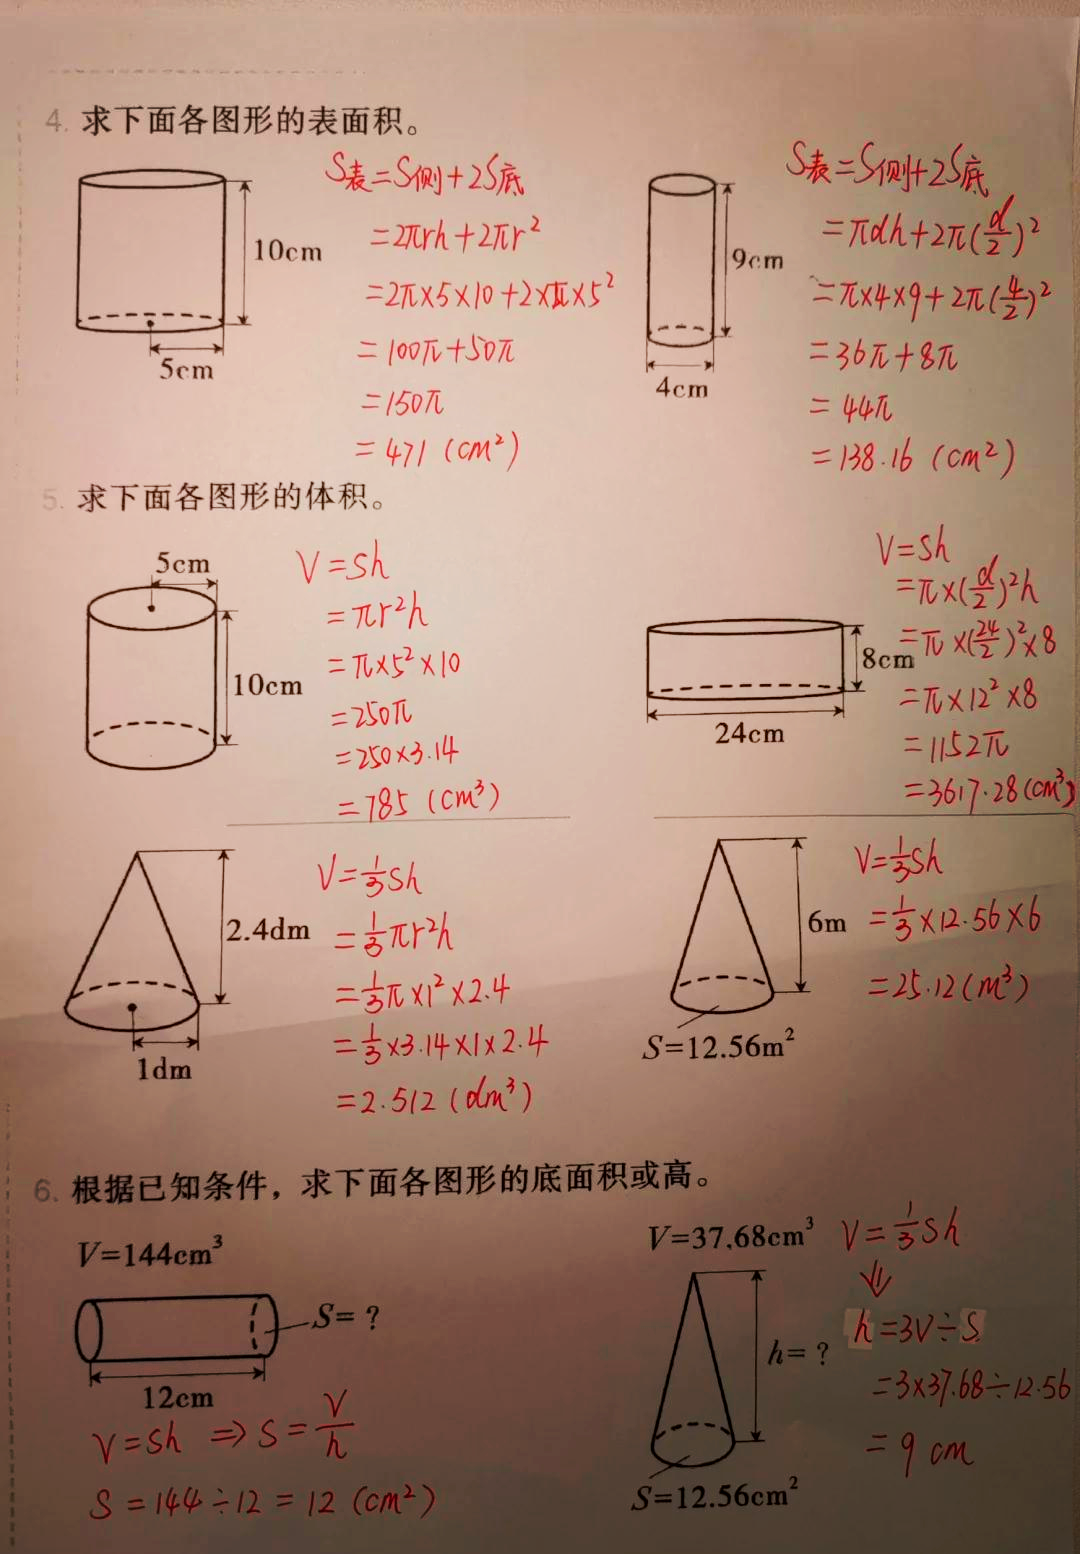 4. 求下面各图形的表面积。
10cm
5cm
S表=S侧+2S底
=2πrh+2πr²
=2π×5×10+2×π×5²
=100π+50π
=150π
=471 (cm²)
9cm
4cm
S表=S侧+2S底
=πdh+2π(d/2)²
=π×4×9+2π(4/2)²
=36π+8π
=44π
=138.16 (cm²)
5. 求下面各图形的体积。
5cm
10cm
V=Sh
=πr²h
=π×5²×10
=250π
=250×3.14
=785 (cm³)
8cm
24cm
V=Sh
=π×(d/2)²h
=π×(24/2)²×8
=π×12²×8
=1152π
=3617.28(cm³)
2.4dm
1dm
V=1/3Sh
=1/3πr²h
=1/3π×1²×2.4
=1/3×3.14×1×2.4
=2.512 (dm³)
6m
S=12.56m²
V=1/3Sh
=1/3×12.56×6
=25.12(m³)
6. 根据已知条件，求下面各图形的底面积或高。
V=144cm³
S=?
12cm
V=Sh ⇒ S=V/h
S=144÷12=12 (cm²)
V=37.68cm³
h=?
S=12.56cm²
V=1/3Sh
⇓
h=3V÷S
=3×37.68÷12.56
=9 cm